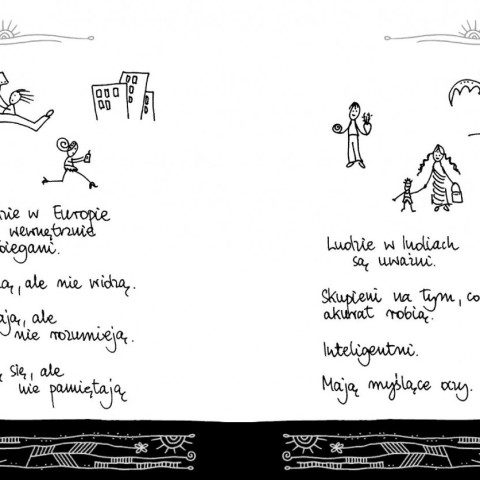 w Europie
wewnętrznie
biegani.
ą, ale nie widzą.
ają, ale
nie rozumieją.
ą się, ale
nie pamiętają
Ludzie w Indiach
są uważni.
Skupieni na tym, co
akurat robią.
Inteligentni.
Mają myślące oczy.